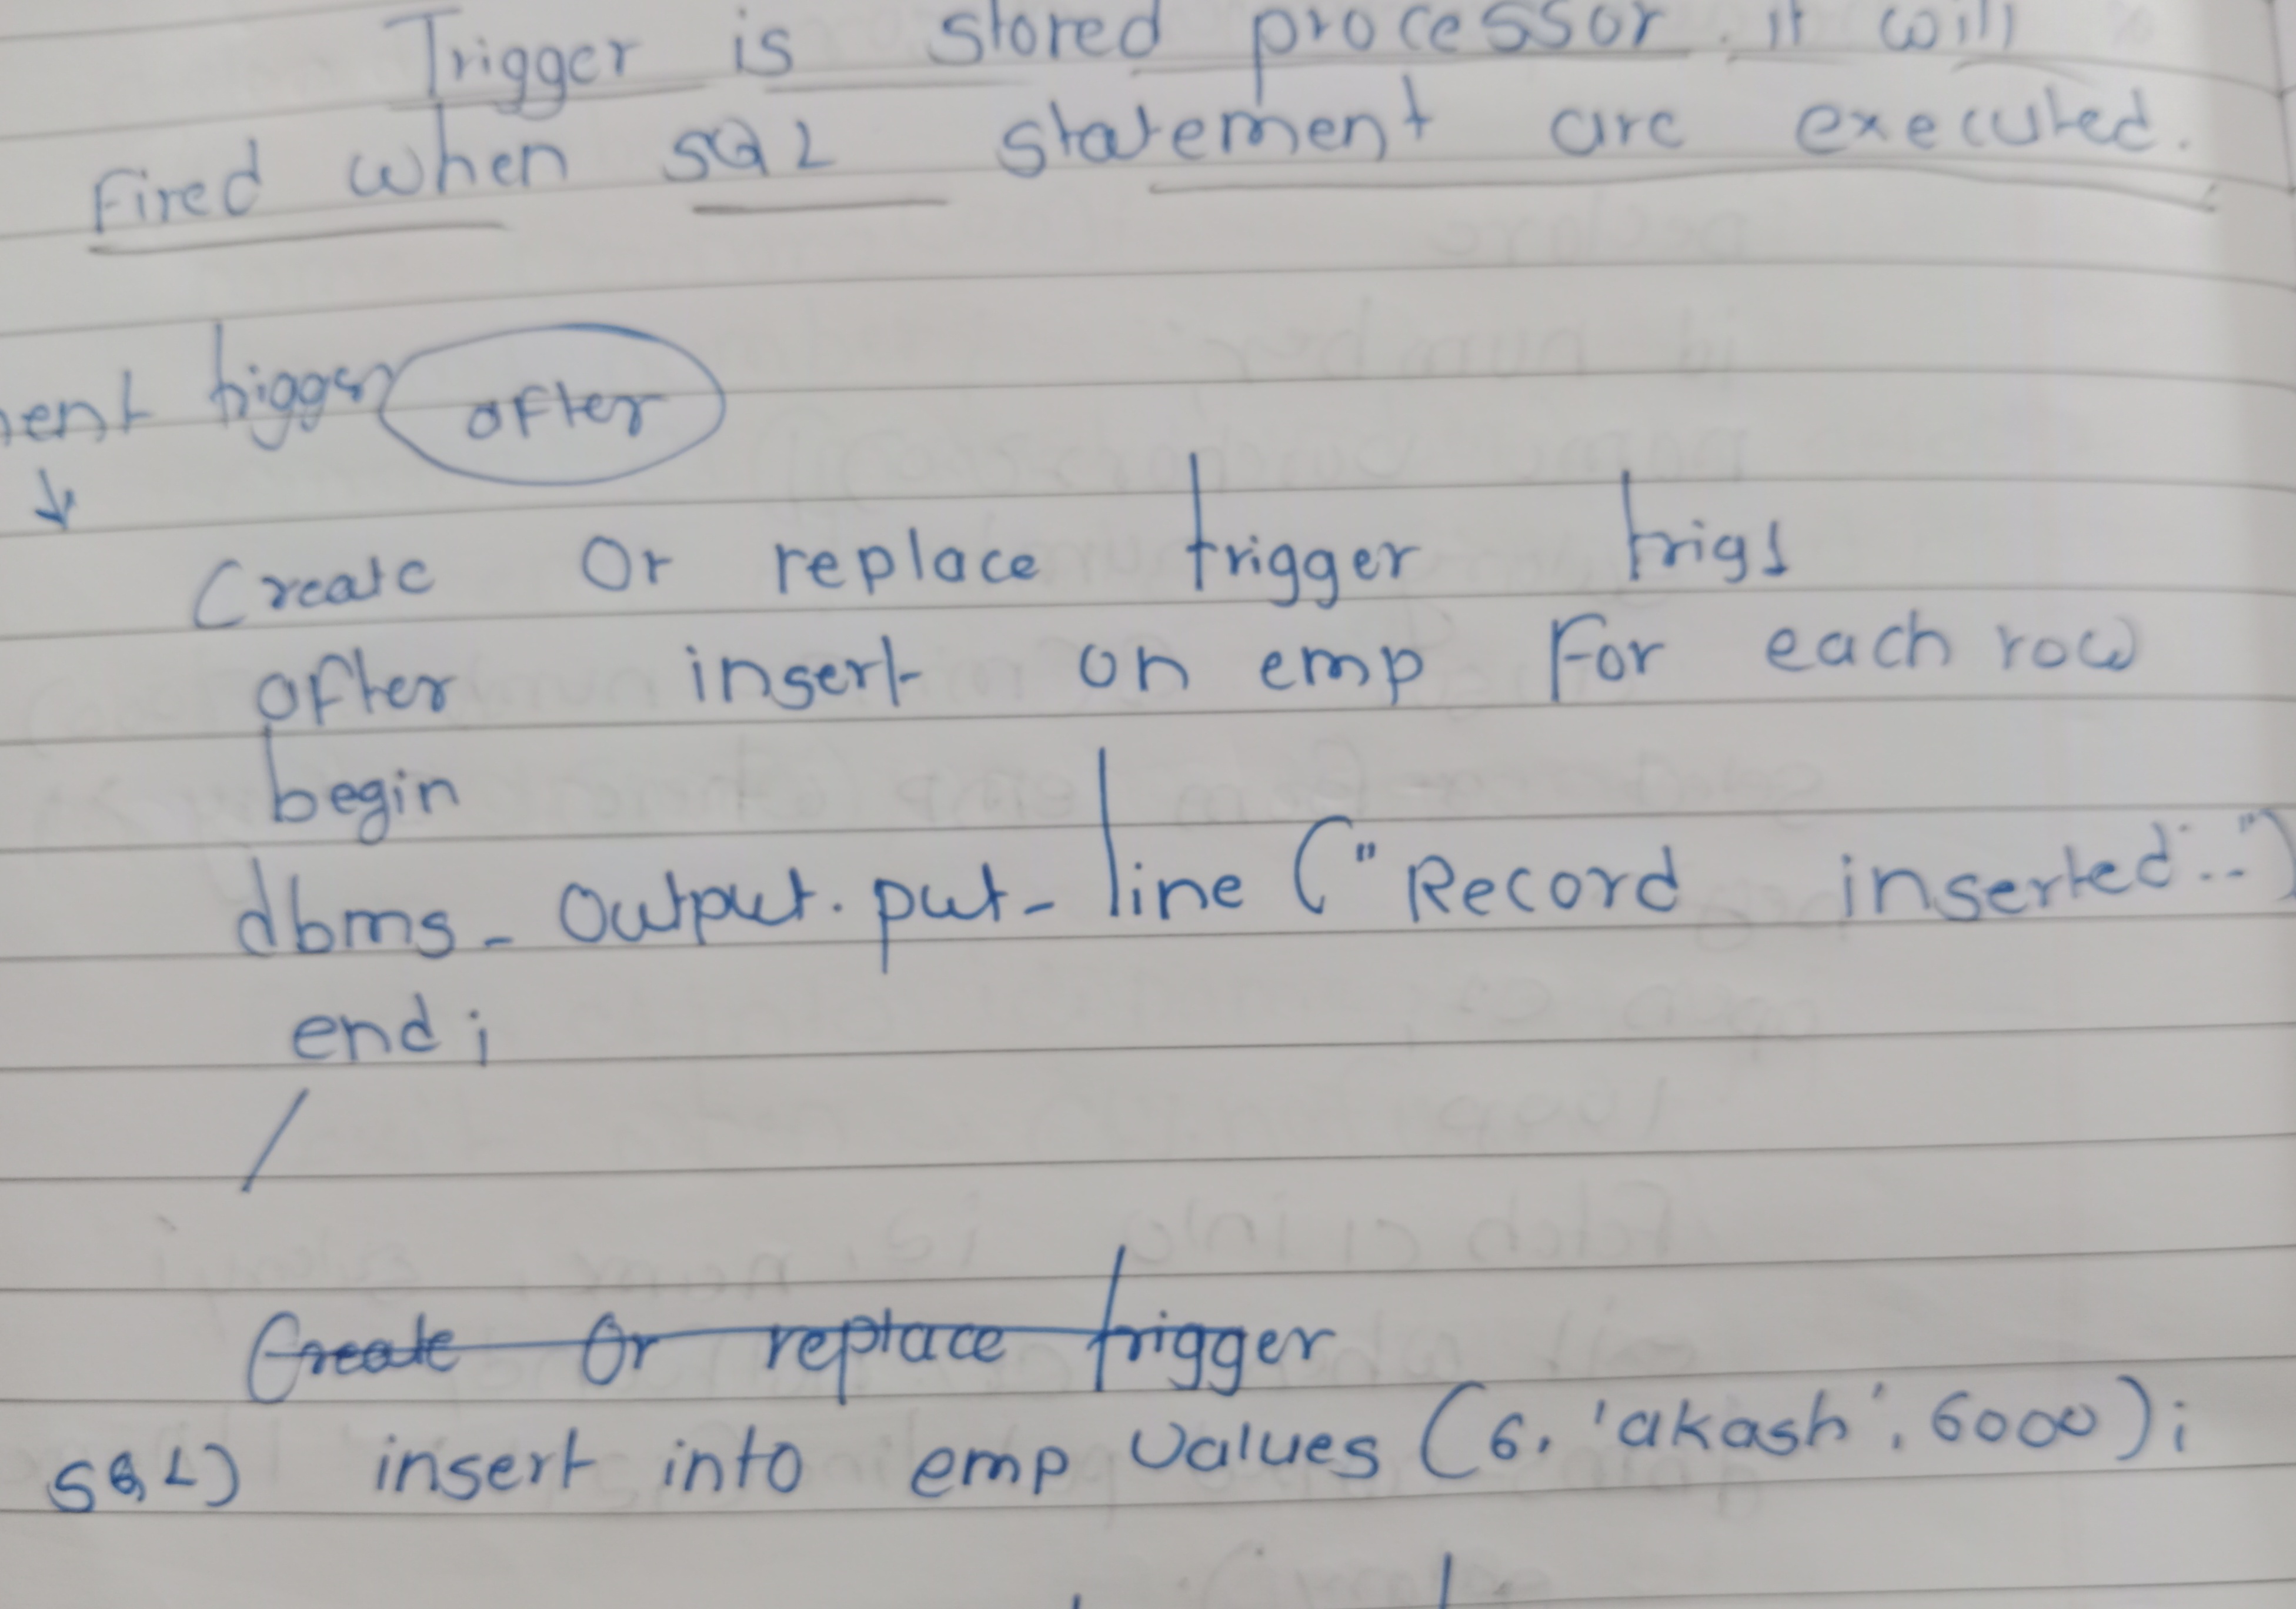 Trigger is stored processor. it will
Fired when SQL statement are executed.
trigger after
Create Or replace trigger trig1
after insert on emp For each row
begin
dbms_output.put_line ("Record inserted..")
end;
/
Create Or replace trigger
SQL) insert into emp values (6, 'akash', 6000);